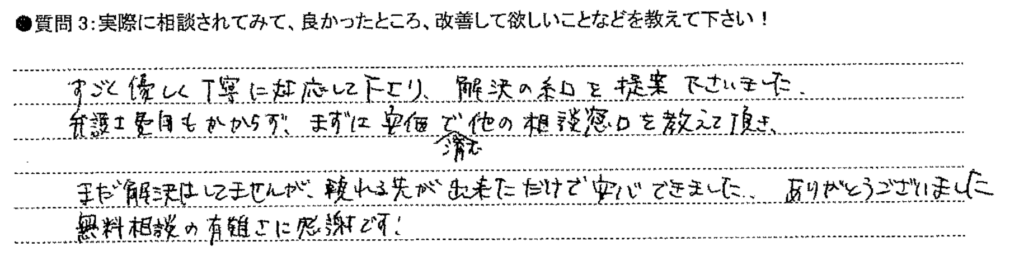 ●質問3:実際に相談されてみて、良かったところ、改善して欲しいことなどを教えて下さい!
すごく優しく丁寧に対応して下さり、解決の糸口を提案下さいました。
弁護士費用もかからず、まずは安価で済む他の相談窓口を教えて頂き、
まだ解決はしてませんが、頼れる先が出来ただけで安心できました。ありがとうございました
無料相談の有難さに感謝です!